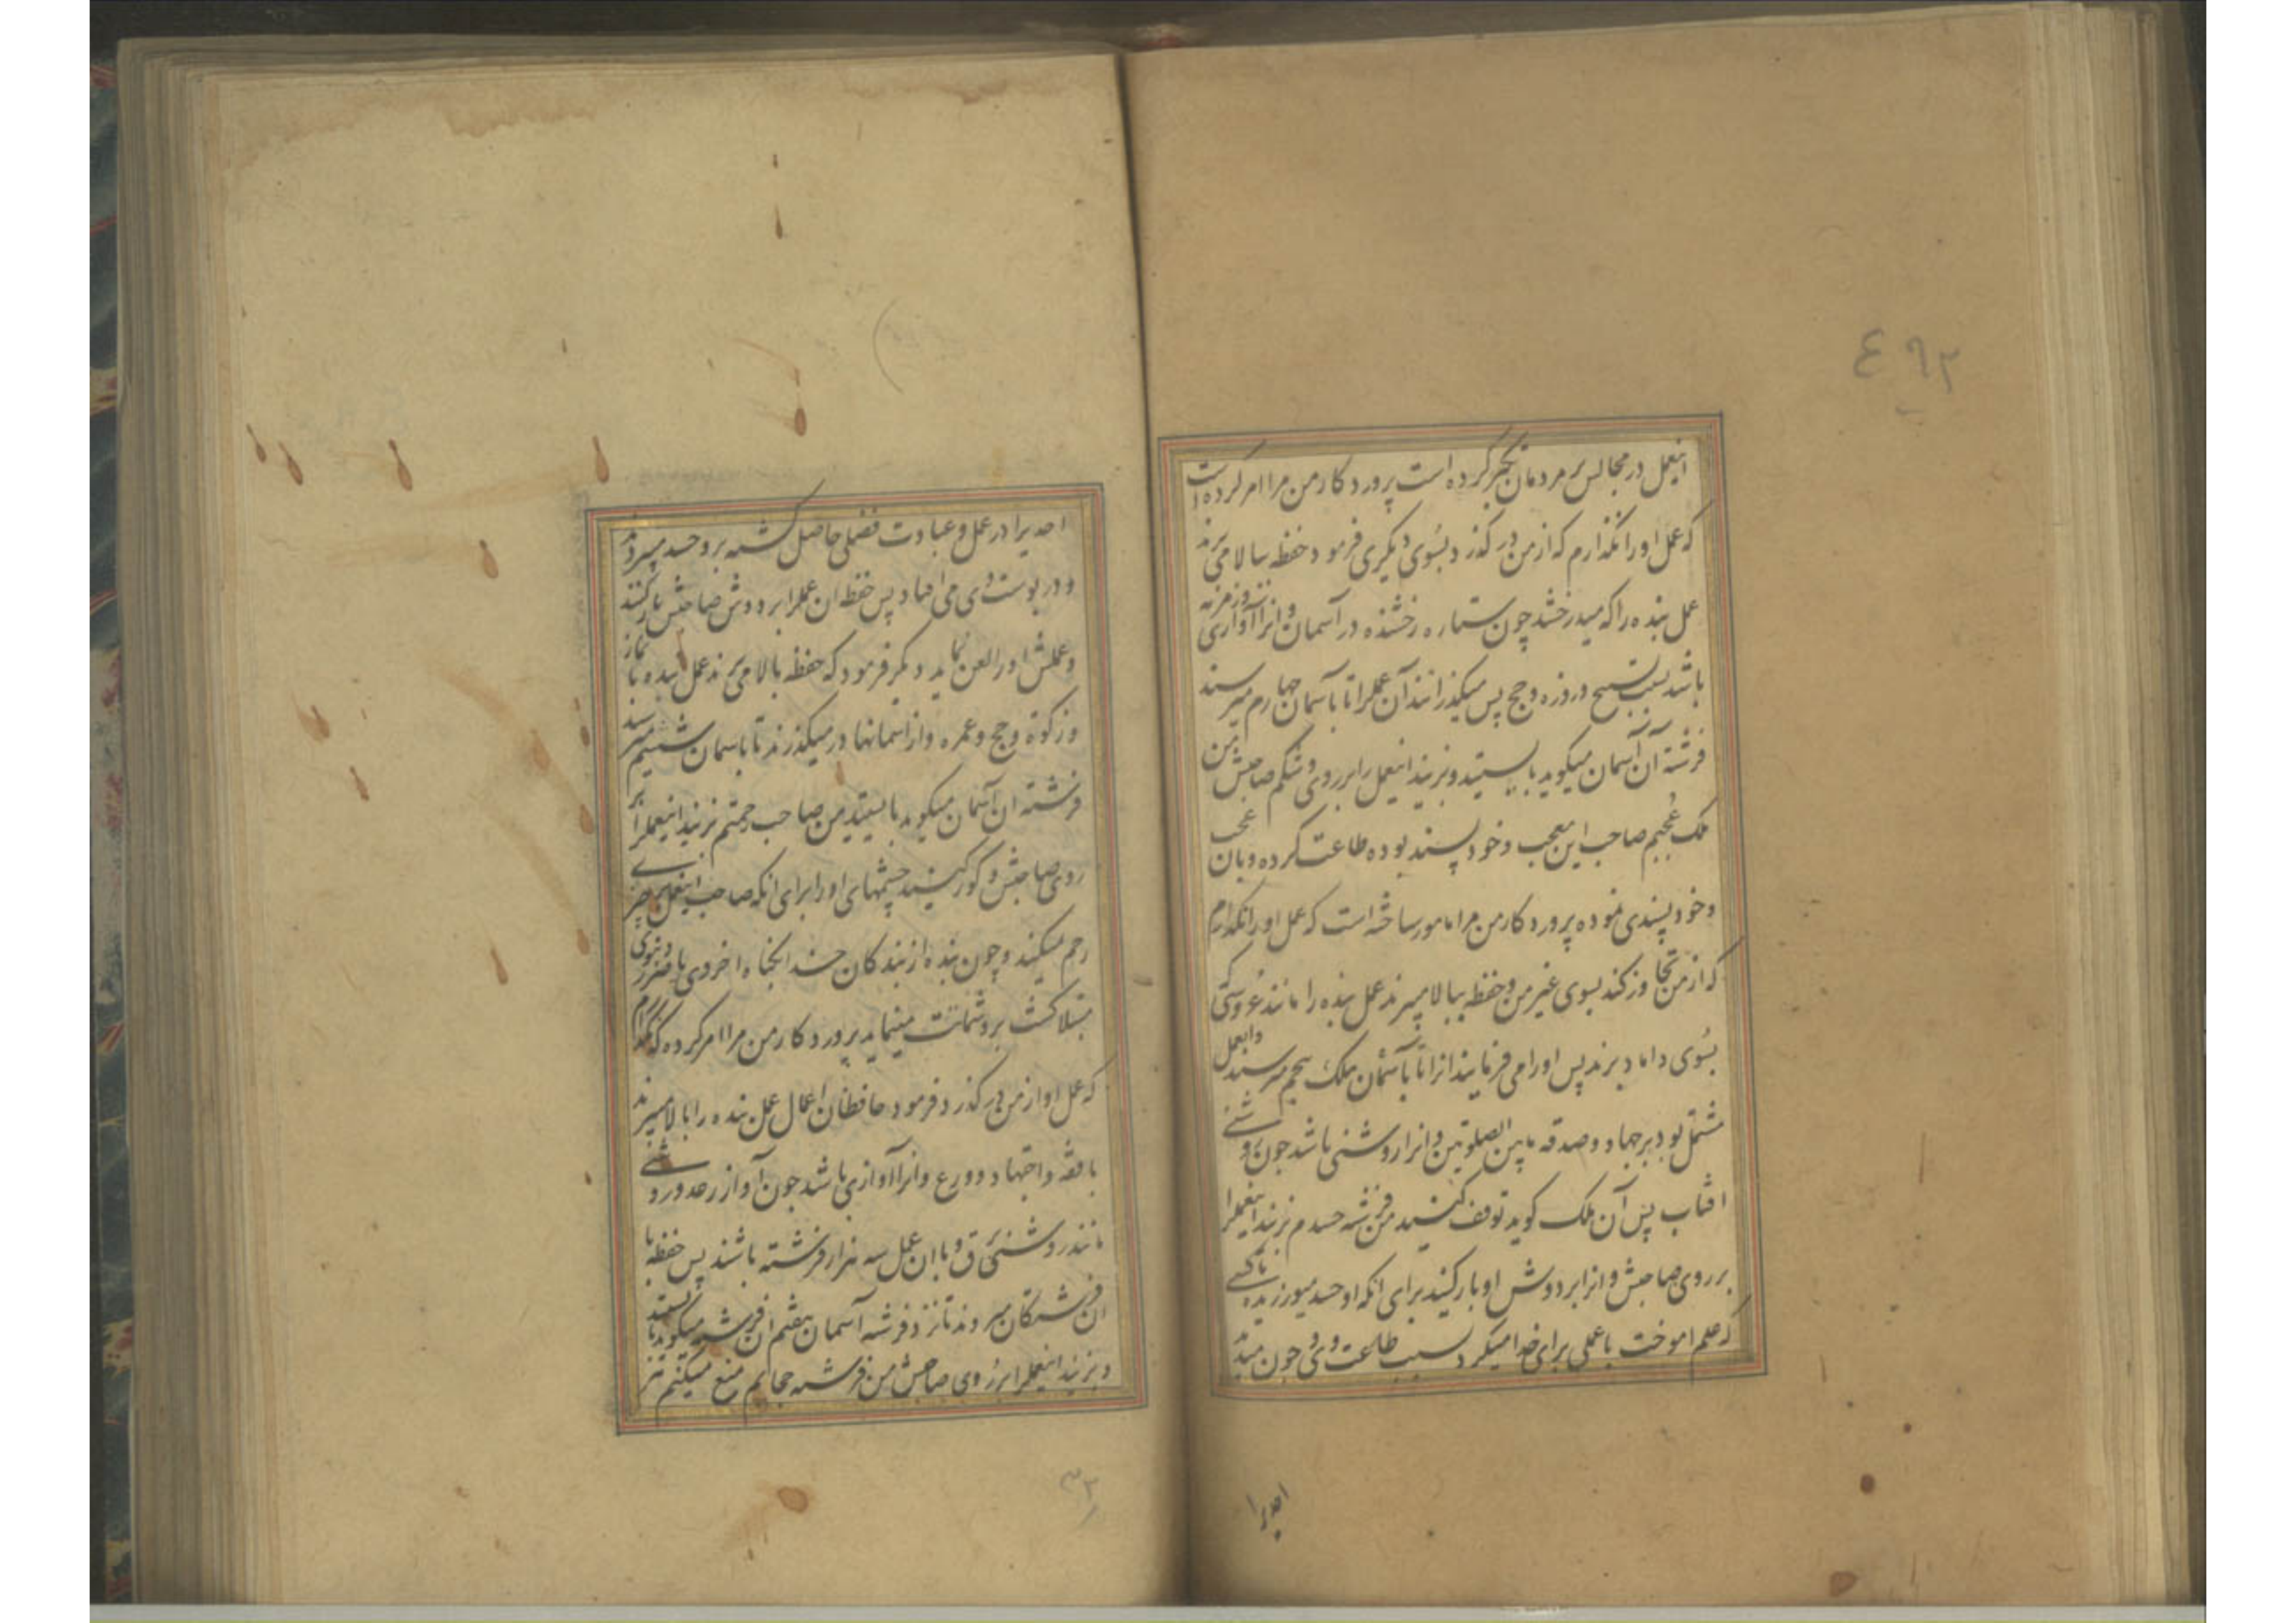 ٤٩٢
اینعمل در مجالس بر مردمان تکبر کرده است پروردکار من مرا امر کرده است
که عمل او را نکذارم که از من در کذرد بسوی دیکری فرمود حفظه ببالا می برند
عمل بنده را که میدرخشد چون ستاره رخشنده در آسمان و انرا آوازی
باشد بسبب تسبیح و روزه و حج پس میکذرانند آن عمل را تا بآسمان چهارم میرسند
فرشته آن آسمان میکوید بایستید و بزنید اینعمل را بر روی و شکم صاحبش من
ملک عُجبم صاحب این معجب و خود پسند بوده طاعت کرده و بان عجب
و خود پسندی نموده پروردکار من مرا مامور ساخته است که عمل او را نکذارم
که از من تجاوز کند بسوی غیر من و حفظه ببالا میبرند عمل بنده را مانند عروسی که
بسُوی داماد برند پس او را می فرمایند انرا تا بآسمان ملک پنجم میرسند و انعمل
مشتمل بود بر جهاد و صدقه مابین الصلوتین و انرا روشنی باشد چون روشنی
افتاب پس آن ملک کوید توقف کنید من فرشته حسدم بزنید اینعمل را
بر روی صاحبش و انرا بر دوش او بار کنید برای انکه او حسد میورزیده تا کسی
که علم اموخت یا عملی برای خدا میکرد بسبب طاعت وی و چون میدید
احدیرا
احدیرا در عمل و عبادت فضلی حاصل کشته برو حسد میبرد
و در پوست ای می افتاد پس حفظه ان عمل را بر دوش صاحبش بار کنند
و عملش او را لعن نماید دیکر فرمود که حفظه بالا می برند عمل بنده با نماز
و زکوة و حج و عمره و از اسمانها در میکذرند تا باسمان ششم میرسند
فرشته ان آسمان میکوید بایستید من صاحب رحمتم بزنید اینعمل را بر
روی صاحبش و کور کنید چشمهای او را برای انکه صاحب اینعمل بر چیزی
رحم نمیکند و چون بنده از بندکان خدا بکناه اخروی یا ضرر دنیوی
مبتلا کشت برو شماتت مینماید پروردکار من مرا امر کرده که نکذارم
که عمل او از من در کذرد فرمود حافظان اعمال عمل بنده را بالا میبرند
با فقه و اجتهاد و ورع و انرا آوازی باشد چون آواز رعد و روشنی
مانند روشنی برق و با ان عمل سه هزار فرشته باشند پس حفظه با
ان فرشتکان میروند تا نزد فرشته آسمان هفتم ان فرشته میکوید بایستید
و بزنید اینعمل را بر روی صاحبش من فرشته حجابم منع میکنم
٣٢